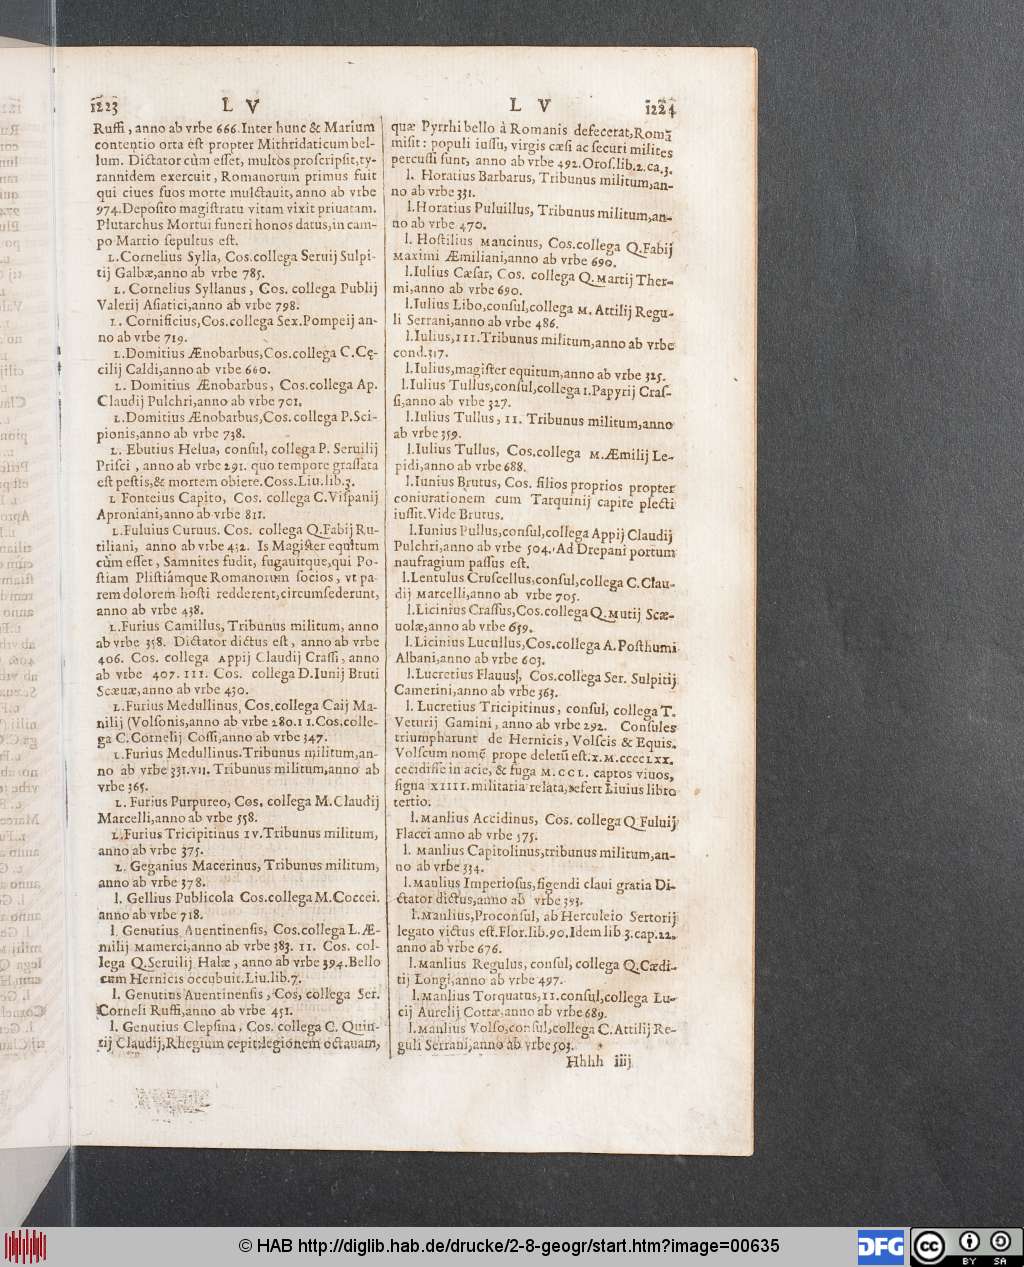 1223 L V
Ruffi, anno ab vrbe 666. Inter hunc & Marium
contentio orta est propter Mithridaticum bel-
lum. Dictator cùm esset, multos proscripsit, ty-
rannidem exercuit, Romanorum primus fuit
qui ciues suos morte mulctauit, anno ab vrbe
974. Deposito magistratu vitam vixit priuatam.
Plutarchus Mortui funeri honos datus, in cam-
po Martio sepultus est.
L. Cornelius Sylla, Cos. collega Seruij Sulpi-
tij Galbæ, anno ab vrbe 785.
L. Cornelius Syllanus, Cos. collega Publij
Valerij Asiatici, anno ab vrbe 798.
L. Cornificius, Cos. collega Sex. Pompeij an-
no ab vrbe 719.
L. Domitius Ænobarbus, Cos. collega C. Cę-
cilij Caldi, anno ab vrbe 660.
L. Domitius Ænobarbus, Cos. collega Ap.
Claudij Pulchri, anno ab vrbe 701.
L. Domitius Ænobarbus, Cos. collega P. Sci-
pionis, anno ab vrbe 738.
L. Ebutius Helua, consul, collega P. Seruilij
Prisci, anno ab vrbe 291. quo tempore grassata
est pestis, & mortem obiere. Coss. Liu. lib. 3.
L Fonteius Capito, Cos. collega C. Vispanij
Aproniani, anno ab vrbe 811.
L. Fuluius Curuus. Cos. collega Q. Fabij Ru-
tiliani, anno ab vrbe 432. Is Magister equitum
cùm esset, Samnites fudit, fugauitque, qui Po-
stiam Plistiámque Romanorum socios, vt pa-
rem dolorem hosti redderent, circumsederunt,
anno ab vrbe 438.
L. Furius Camillus, Tribunus militum, anno
ab vrbe 358. Dictator dictus est, anno ab vrbe
406. Cos. collega Appij Claudij Crassi, anno
ab vrbe 407. III. Cos. collega D. Iunij Bruti
Scæuæ, anno ab vrbe 430.
L. Furius Medullinus, Cos. collega Caij Ma-
nilij (Volsonis, anno ab vrbe 280. II. Cos. colle-
ga C. Cornelij Cossi, anno ab vrbe 347.
L. Furius Medullinus. Tribunus militum, an-
no ab vrbe 331. VII. Tribunus militum, anno ab
vrbe 365.
L. Furius Purpureo, Cos. collega M. Claudij
Marcelli, anno ab vrbe 558.
L. Furius Tricipitinus IV. Tribunus militum,
anno ab vrbe 375.
L. Geganius Macerinus, Tribunus militum,
anno ab vrbe 378.
l. Gellius Publicola Cos. collega M. Coccei.
anno ab vrbe 718.
l. Genutius Auentinensis, Cos. collega L. Æ-
milij Mamerci, anno ab vrbe 383. II. Cos. col-
lega Q. Seruilij Halæ, anno ab vrbe 394. Bello
cum Hernicis occubuit. Liu. lib. 7.
l. Genutius Auentinensis, Cos, collega Ser.
Corneli Ruffi, anno ab vrbe 451.
l. Genutius Clepsina, Cos. collega C. Quin-
tij Claudij, Rhegium cepit: legionem octauam,
L V 1224
quæ Pyrrhi bello à Romanis defecerat, Romã
misit: populi iussu, virgis cæsi ac securi milites
percussi sunt, anno ab vrbe 492. Oros. lib. 2. ca. 3.
l. Horatius Barbarus, Tribunus militum, an-
no ab vrbe 331.
l. Horatius Puluillus, Tribunus militum, an-
no ab vrbe 470.
l. Hostilius Mancinus, Cos. collega Q. Fabij
Maximi Æmiliani, anno ab vrbe 690.
l. Iulius Cæsar, Cos. collega Q. Martij Ther-
mi, anno ab vrbe 690.
l. Iulius Libo, consul, collega M. Attilij Regu-
li Serrani, anno ab vrbe 486.
l. Iulius, III. Tribunus militum, anno ab vrbe
cond. 317.
l. Iulius, magister equitum, anno ab vrbe 325.
l. Iulius Tullus, consul, collega I. Papyrij Cras-
si, anno ab vrbe 327.
l. Iulius Tullus, II. Tribunus militum, anno
ab vrbe 359.
l. Iulius Tullus, Cos. collega M. Æmilij Le-
pidi, anno ab vrbe 688.
l. Iunius Brutus, Cos. filios proprios propter
coniurationem cum Tarquinij capite plecti
iussit. Vide Brutus.
l. Iunius Pullus, consul, collega Appij Claudij
Pulchri, anno ab vrbe 504. Ad Drepani portum
naufragium passus est.
l. Lentulus Cruscellus, consul, collega C. Clau-
dij Marcelli, anno ab vrbe 705.
l. Licinius Crassus, Cos. collega Q. Mutij Scæ-
uolæ, anno ab vrbe 659.
l. Licinius Lucullus, Cos. collega A. Posthumi
Albani, anno ab vrbe 603.
l. Lucretius Flauus, Cos. collega Ser. Sulpitij
Camerini, anno ab vrbe 363.
l. Lucretius Tricipitinus, consul, collega T.
Veturij Gamini, anno ab vrbe 292. Consules
triumpharunt de Hernicis, Volscis & Equis.
Volscum nomẽ prope deletũ est. X.M.CCCCLXX.
cecidisse in acie, & fuga M.CCL. captos viuos,
signa XIIII. militaria relata, refert Liuius libro
tertio.
l. Manlius Accidinus, Cos. collega Q Fuluij
Flacci anno ab vrbe 575.
l. Manlius Capitolinus, tribunus militum, an-
no ab vrbe 334.
l. Manlius Imperiosus, figendi claui gratia Di-
ctator dictus, anno ab vrbe 393.
l. Manlius, Proconsul, ab Herculeio Sertorij
legato victus est. Flor. lib. 90. Idem lib 3. cap. 22.
anno ab vrbe 676.
l. Manlius Regulus, consul, collega Q. Cædi-
tij Longi, anno ab vrbe 497.
l. Manlius Torquatus, II. consul, collega Lu-
cij Aurelij Cottæ, anno ab vrbe 689.
l. Manlius Volso, consul, collega C. Attilij Re-
guli Serrani, anno ab vrbe 503.
Hhhh iiij
© HAB http://diglib.hab.de/drucke/2-8-geogr/start.htm?image=00635
DFG
cc BY SA